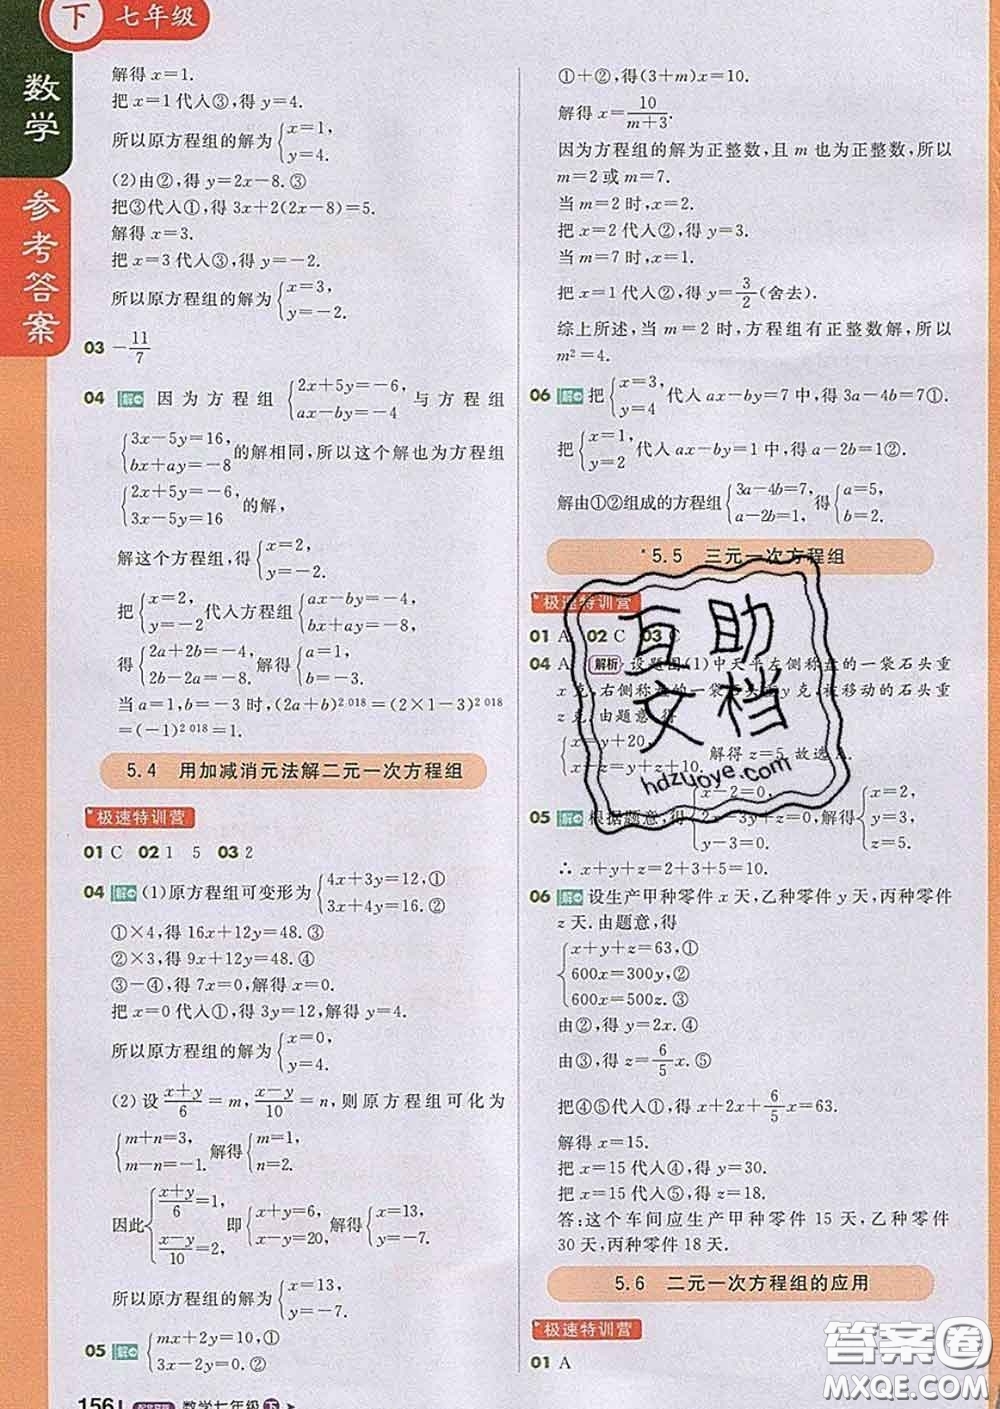 下 七年级
数学
参考答案
解得 x=1.
把 x=1 代入③,得 y=4.
所以原方程组的解为{x=1, y=4.
(2)由②,得 y=2x-8.③
把③代入①,得 3x+2(2x-8)=5.
解得 x=3.
把 x=3 代入③,得 y=-2.
所以原方程组的解为{x=3, y=-2.
03 -11/7
04 解 因为方程组{2x+5y=-6, ax-by=-4 与方程组
{3x-5y=16, bx+ay=-8 的解相同,所以这个解也为方程组
{2x+5y=-6, 3x-5y=16 的解,
解这个方程组,得{x=2, y=-2.
把{x=2, y=-2 代入方程组{ax-by=-4, bx+ay=-8,
得{2a+2b=-4, 2b-2a=-8. 解得{a=1, b=-3.
当 a=1,b=-3 时,(2a+b)^2 018=(2×1-3)^2 018
=(-1)^2 018=1.
5.4 用加减消元法解二元一次方程组
极速特训营
01 C 02 1 5 03 2
04 解 (1)原方程组可变形为{4x+3y=12,① 3x+4y=16.②
①×4,得 16x+12y=48.③
②×3,得 9x+12y=48.④
③-④,得 7x=0,解得 x=0.
把 x=0 代入①,得 3y=12,解得 y=4.
所以原方程组的解为{x=0, y=4.
(2)设 (x+y)/6=m, (x-y)/10=n,则原方程组可化为
{m+n=3, m-n=-1. 解得{m=1, n=2.
因此{(x+y)/6=1, (x-y)/10=2, 即{x+y=6, x-y=20, 解得{x=13, y=-7.
所以原方程组的解为{x=13, y=-7.
05 解 {mx+2y=10,① 3x-2y=0.②
156 数学七年级 下
①+②,得(3+m)x=10.
解得 x=10/(m+3).
因为方程组的解为正整数,且 m 也为正整数,所以
m=2 或 m=7.
当 m=2 时,x=2.
把 x=2 代入②,得 y=3.
当 m=7 时,x=1.
把 x=1 代入②,得 y=3/2(舍去).
综上所述,当 m=2 时,方程组有正整数解,所以
m²=4.
06 解 把{x=3, y=4 代入 ax-by=7 中,得 3a-4b=7①.
把{x=1, y=2 代入 ax-by=1 中,得 a-2b=1②.
解由①②组成的方程组{3a-4b=7, a-2b=1, 得{a=5, b=2.
*5.5 三元一次方程组
极速特训营
01 A 02 C 03 C
04 A 解析 设题图(1)中天平左侧秤盘的一袋石头重
x 克,右侧秤盘的一袋石头重 y 克,被移动的石头重
z 克.由题意,得
{x=y+20, 解得 z=5.故选 A.
05 解 根据题意,得{x-2=0, y+z=0, y-3=0. 解得{x=2, y=3, z=5.
∴ x+y+z=2+3+5=10.
06 解 设生产甲种零件 x 天,乙种零件 y 天,丙种零件
z 天.由题意,得
{x+y+z=63,① 600x=300y,② 600x=500z.③
由②,得 y=2x.④
由③,得 z=6/5x.⑤
把④⑤代入①,得 x+2x+6/5x=63.
解得 x=15.
把 x=15 代入④,得 y=30.
把 x=15 代入⑤,得 z=18.
答:这个车间应生产甲种零件 15 天,乙种零件
30 天,丙种零件 18 天.
5.6 二元一次方程组的应用
极速特训营
01 A
互助
文档
hdzuoye.com
答案圈
MXQE.COM